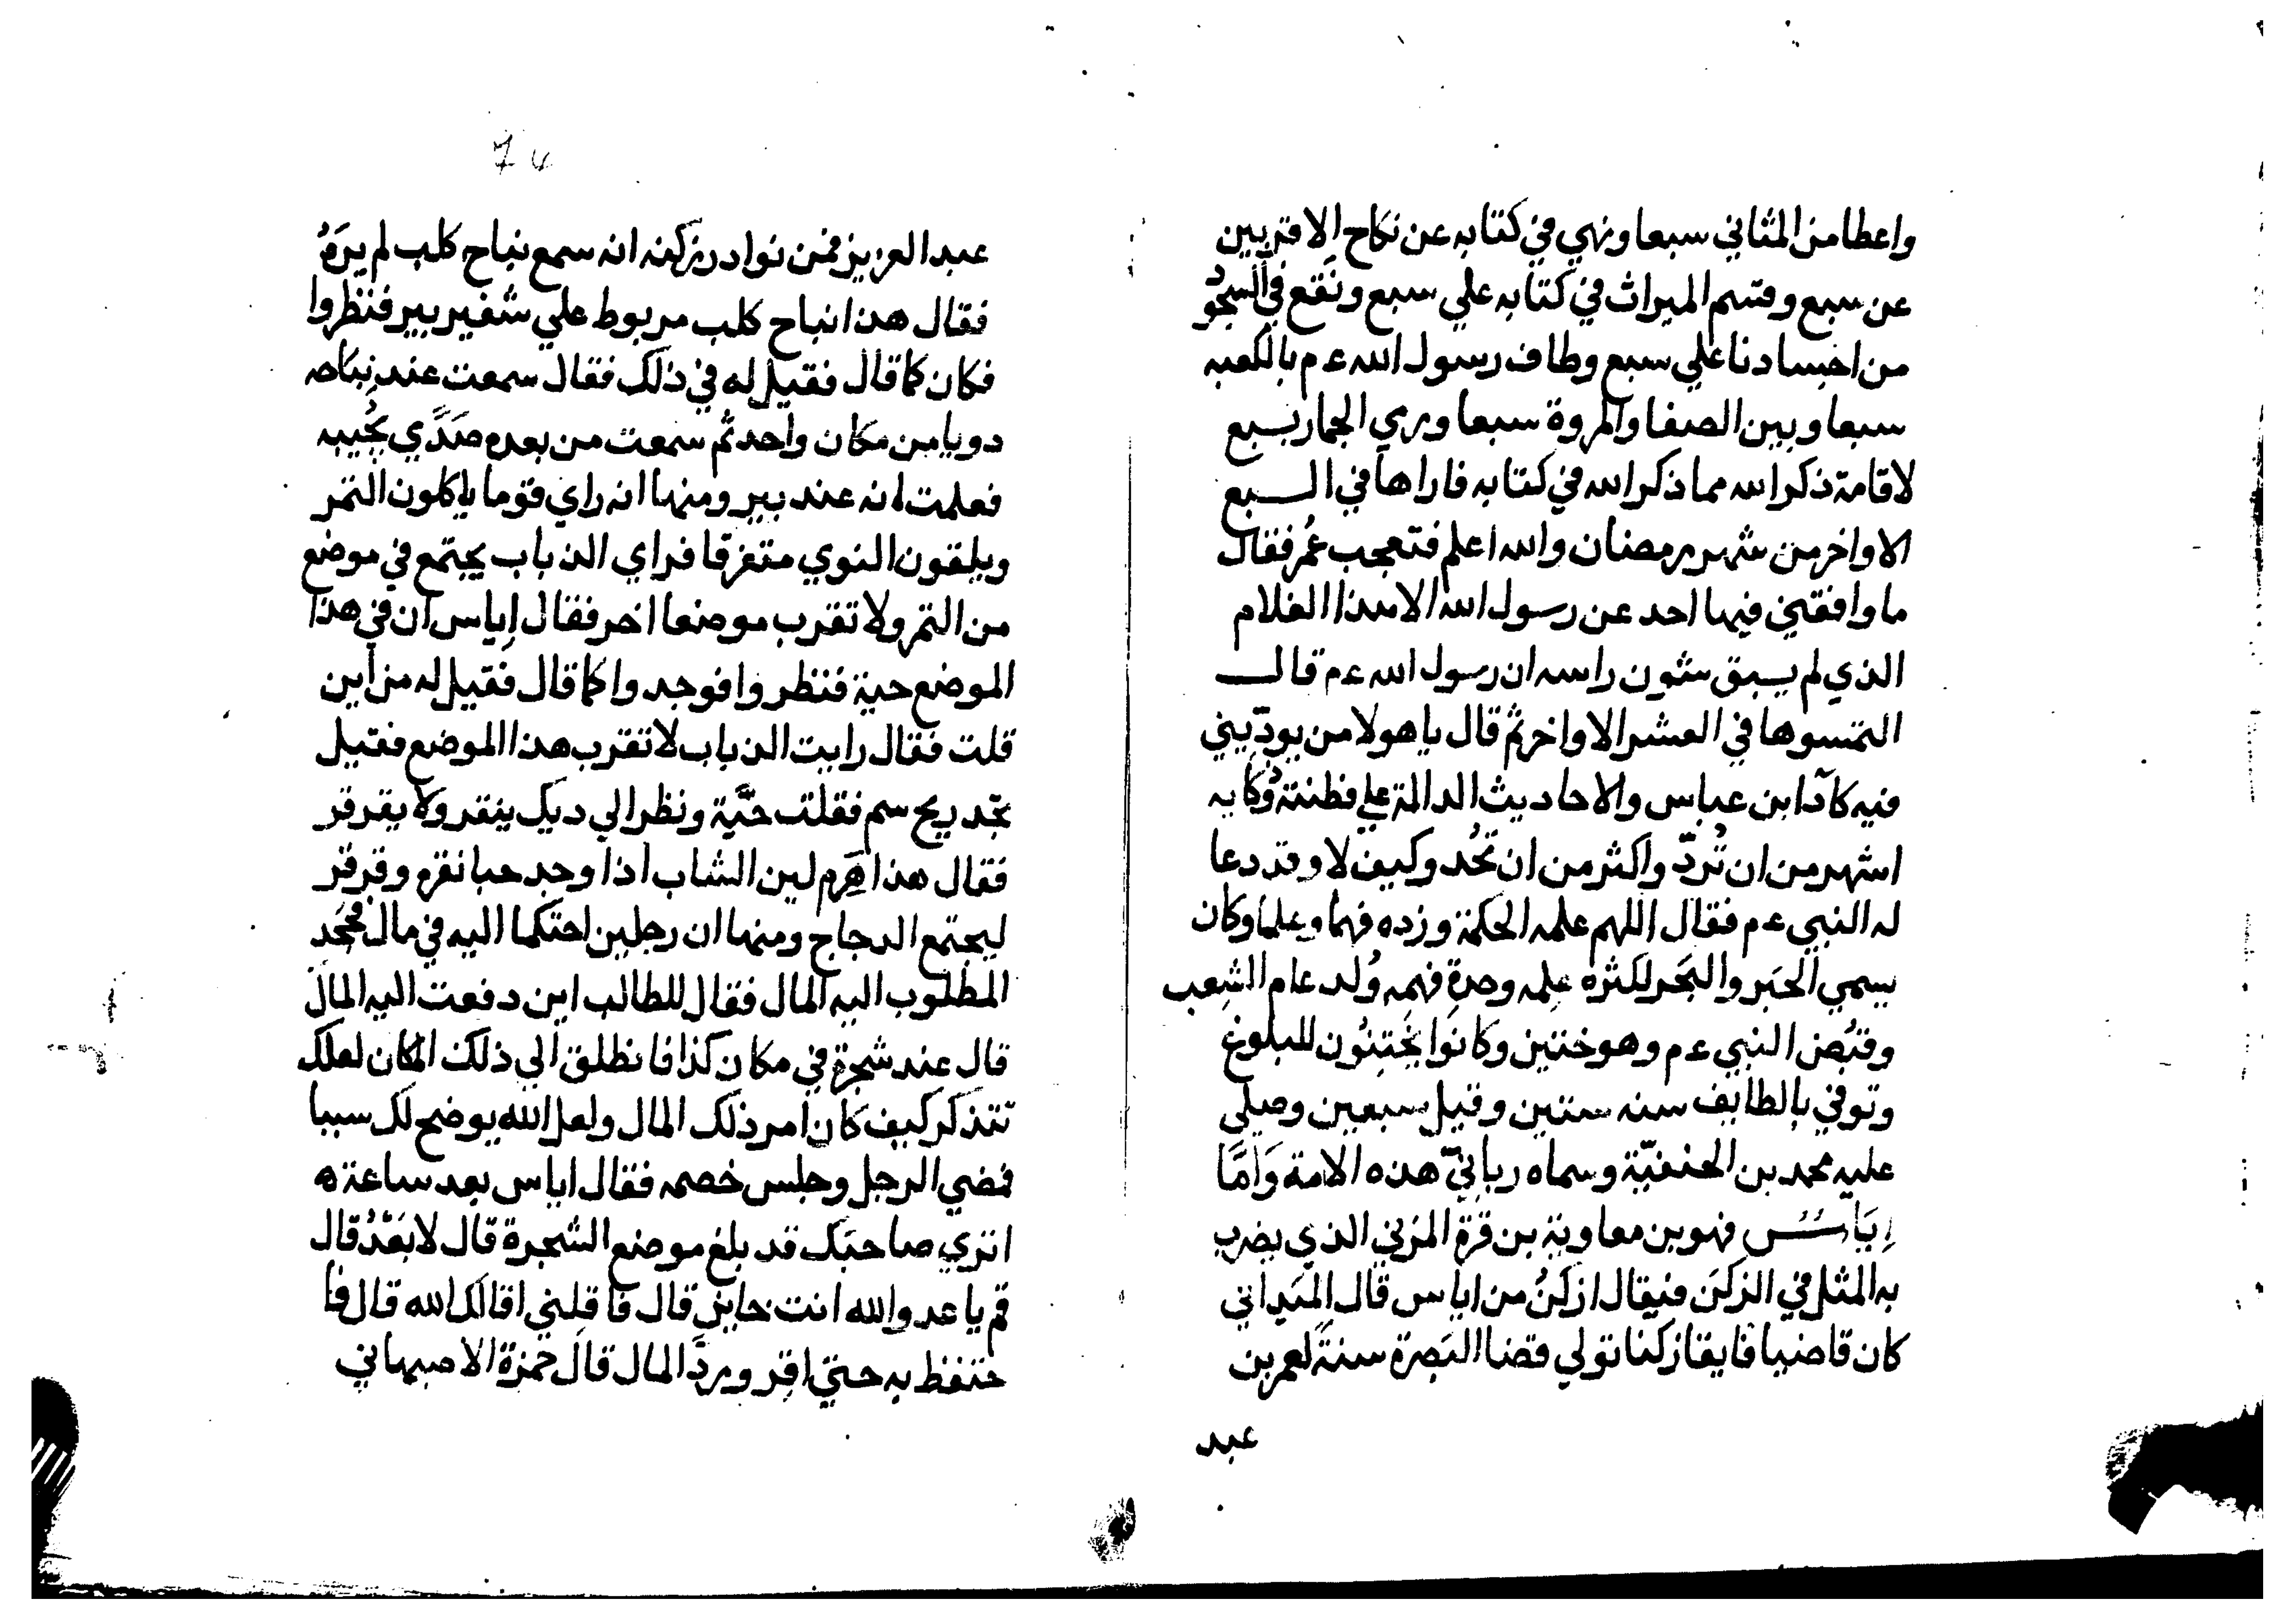 واعطا من المثاني سبعا ونهي في كتابه عن نكاح الاقربين
عن سبع وقسم الميراث في كتابه علي سبع ونقع في السجود
من اجسادنا علي سبع وطاف رسول الله ءم بالكعبه
سبعا وبين الصفا والمروة سبعا ورمي الجمار بسبع
لاقامة ذكر الله مما ذكر الله في كتابه فاراها في السبع
الاواخر من شهر رمضان والله اعلم فتعجب عُمر فقال
ما وافقني فيها احد عن رسول الله الا هذا الغلام
الذي لم يسبق شون راسه ان رسول الله ءم قال
التمسوها في العشر الاواخر ثم قال يا هولا من يودّيني
فيه كآدا ابن عباس والاحاديث الدالة علي فطنته وُكايه
اشهر من ان تُردّ واكثر من ان تُحُد وكيف لا وقد دعا
له النبي ءم فقال اللهم علمه الحكمة وزده فهما وعلما وكان
يسمي الحَبر والبَحر لكثره علمه وحدةِ فهمه وُلد عام الشِعب
وقبُض النبي ءم وهو ختين وكانوا يَختِنُون للبلوغ
وتوفي بالطايف سنه ستين وقيل سبعين وصلي
عليه محمد بن الحنفيّة وسماه ربانيّ هذه الامة وَامّا
اِيَاسُسُ فهو بن معاوية بن قرة المزني الذي يضرب
به المثل في الزكَن فيقال ازكَنُ من اياس قال المَيداني
كان قاضيا فايقا زكنا تولي قضا البَصرة سنةً لعمر بن
عبد
74
عبد العزيز فمن نوادر زكنه انه سمع نباح كلب لم يرَهُ
فقال هذا نباح كلب مربوط علي شفير بير فنظروا
فكان كما قال فقيل له في ذلك فقال سمعت عند نِباحه
دويا من مكان واحد ثم سمعت من بعده صَدًي يُجيبه
فعلمت انه عند بير ومنها انه راي قوما ياكلون التمر
ويلقون النوي متفرقا فراي الذباب يجتمع في موضع
من التمر ولا تقرب موضعا اخر فقال اِياس ان في هذا
الموضع حية فنظروا فوجدوا كما قال فقيل له من اين
قلت فقال رايت الذباب لا تقرب هذا الموضع فقيل
تجد ريح سم فقلت حَيَّة ونظر الي ديك ينقر ولا يقرقر
فقال هذا هَرِم لين الشاب اذا وجد حبا نقره وقرقر
ليجتمع الدجاج ومنها ان رجلين احتكما اليه في مال فجَحَد
المطلوب اليه المال فقال للطالب اين دفعت اليه المال
قال عند شجرة في مكان كذا فانطلق الي ذلك المكان لعلك
تتذكر كيف كان امر ذلك المال ولعل الله يوضح لك سببا
فمضي الرجل وجلس خصمه فقال اياس بعد ساعة ه
اتري صاحبَك قد بلغ موضع الشجرة قال لا بَعْدُ قال
قم يا عدو الله انت خاين قال فاقلِني اقالك الله قال فا
حتفظ به حتي اقِر وردَّ المال قال حمزة الاصبهاني